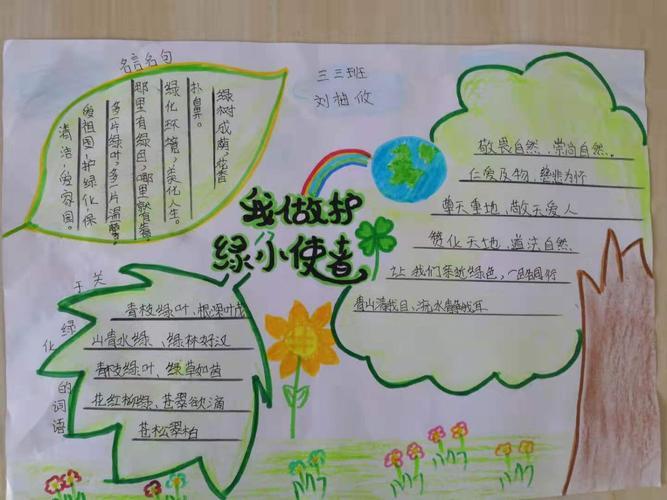 名言名句
绿树成荫,花香
扑鼻。
绿化环境,美化人生。
那里有绿色,哪里就有
多一片绿叶,多一片温馨。
爱祖国,护绿化,保
清洁,爱家园。
三三班
刘柚攸
我做护
绿小使者
敬畏自然、崇尚自然
仁爱及物、慈悲为怀
尊天重地、敬天爱人
赞化天地、道法自然
让我们亲近绿色,一路同行
青山清我目,流水静我耳
关于绿化的词语
青枝绿叶、根深叶茂
山青水绿、绿林好汉
青枝绿叶、绿草如茵
花红柳绿、苍翠欲滴
苍松翠柏